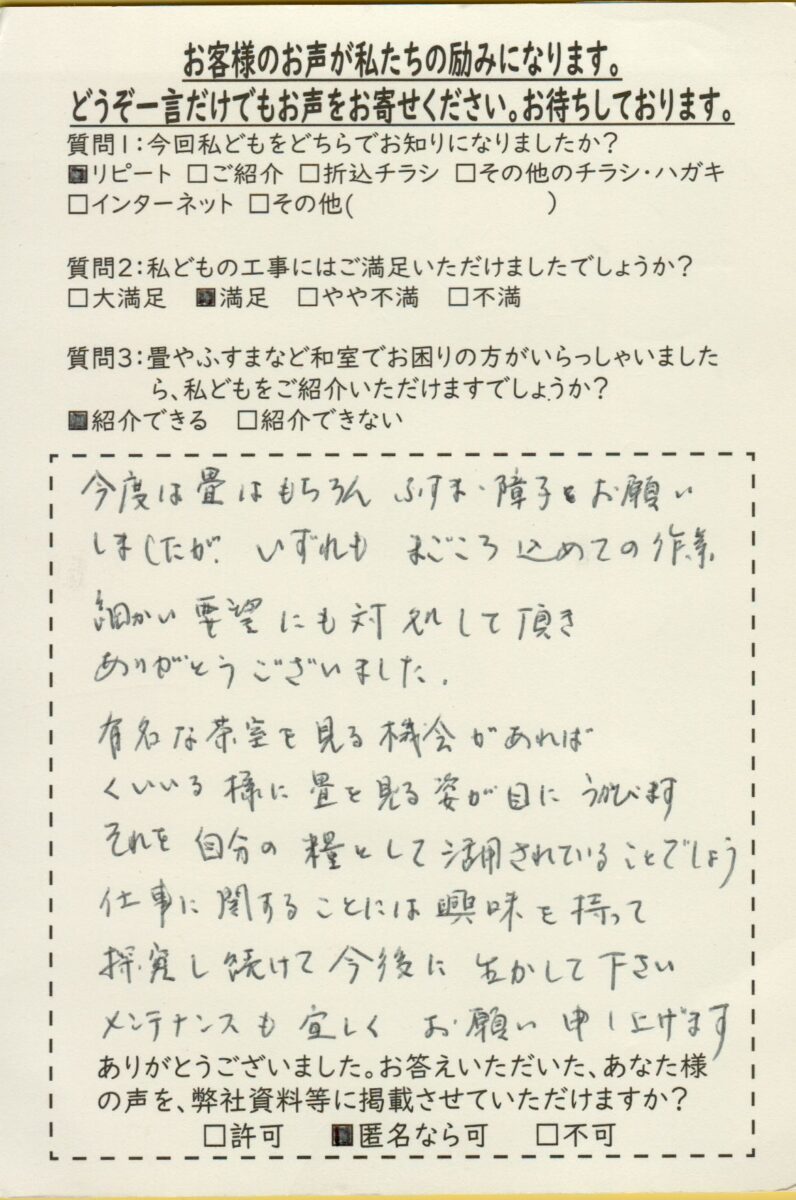 お客様のお声が私たちの励みになります。
どうぞ一言だけでもお声をお寄せください。お待ちしております。
質問1:今回私どもをどちらでお知りになりましたか?
■リピート □ご紹介 □折込チラシ □その他のチラシ・ハガキ
□インターネット □その他( )
質問2:私どもの工事にはご満足いただけましたでしょうか?
□大満足 ■満足 □やや不満 □不満
質問3:畳やふすまなど和室でお困りの方がいらっしゃいました
ら、私どもをご紹介いただけますでしょうか?
■紹介できる □紹介できない
今度は畳はもちろん ふすま・障子をお願い
しましたが、いずれも まごころ込めての作業
細かい要望にも対処して頂き
ありがとうございました.
有名な茶室を見る機会があれば
くいいる様に畳を見る姿が目にうかびます
それを自分の糧として活用されていることでしょう
仕事に関することには興味を持って
探究し続けて今後に生かして下さい
メンテナンスも宜しく お願い申し上げます
ありがとうございました。お答えいただいた、あなた様
の声を、弊社資料等に掲載させていただけますか?
□許可 ■匿名なら可 □不可